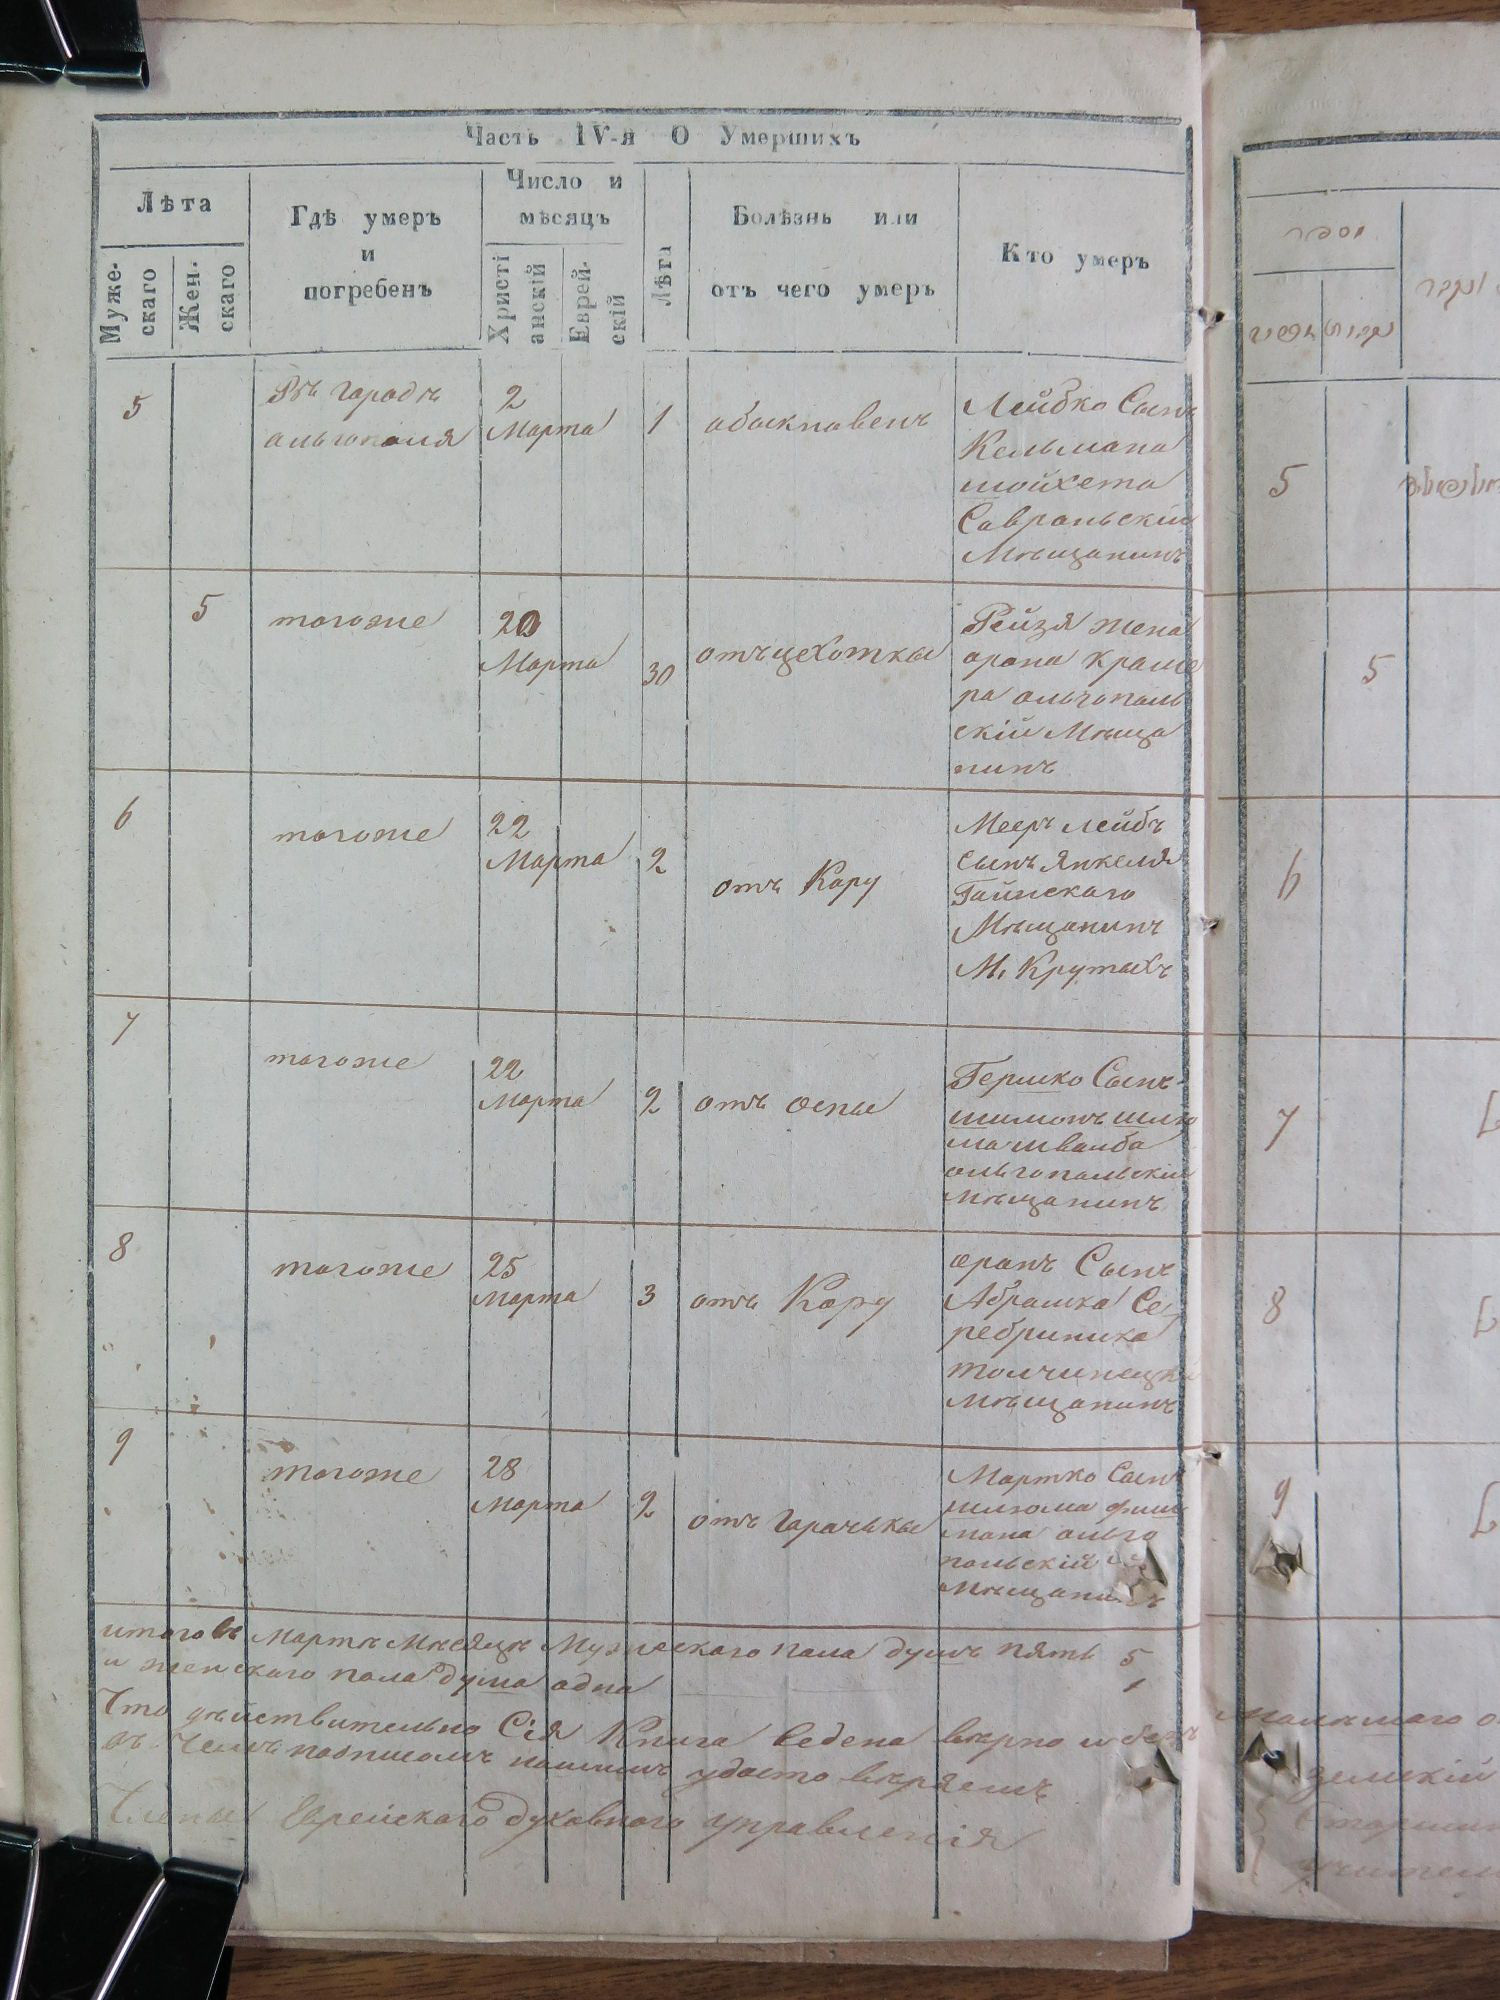 Часть IV-я О Умершихъ
Лѣта
Муже-
скаго
Жен-
скаго
Гдѣ умеръ
и
погребенъ
Число и
мѣсяцъ
Христі
анскій
Еврей-
скій
Лѣта
Болѣзнь или
отъ чего умеръ
Кто умеръ
5
Въ городѣ
ольгополя
2
Марта
1
Лейбко Сынъ
Кельмана
шойхета
Савраньскій
Мѣщанинъ
5
тогоже
20
Марта
30
отъ чехотки
Рейзя жена
орона краме
ра ольгополь
скій Мѣща
нинъ
6
тогоже
22
Марта
2
отъ Кору
Мееръ лейбъ
сынъ Янкеля
Гайнскаго
Мѣщанинъ
М. Крутыхъ
7
тогоже
22
Марта
2
отъ оспы
Гершко Сынъ
шимонъ шлио
ма швалба
ольгопольскій
мѣщанинъ
8
тогоже
25
Марта
3
отъ Кору
оронъ Сынъ
Абрашка Се
ребриника
мѣщанинъ
9
тогоже
28
Марта
2
отъ горачьки
Мортко Сынъ
шлиома фиш
мана ольго
польскій
мѣщанинъ
итого въ Мартѣ Мѣсяцѣ Мужескаго пола душъ пять 5
и женского пола душа одна 1
Что дѣйствительно Сія Книга ведена вѣрно и безъ
въ чемъ подписомъ нашимъ удостовѣряемъ
Члены Еврейскаго духовного управленія
5
5
6
7
8
9
земскій